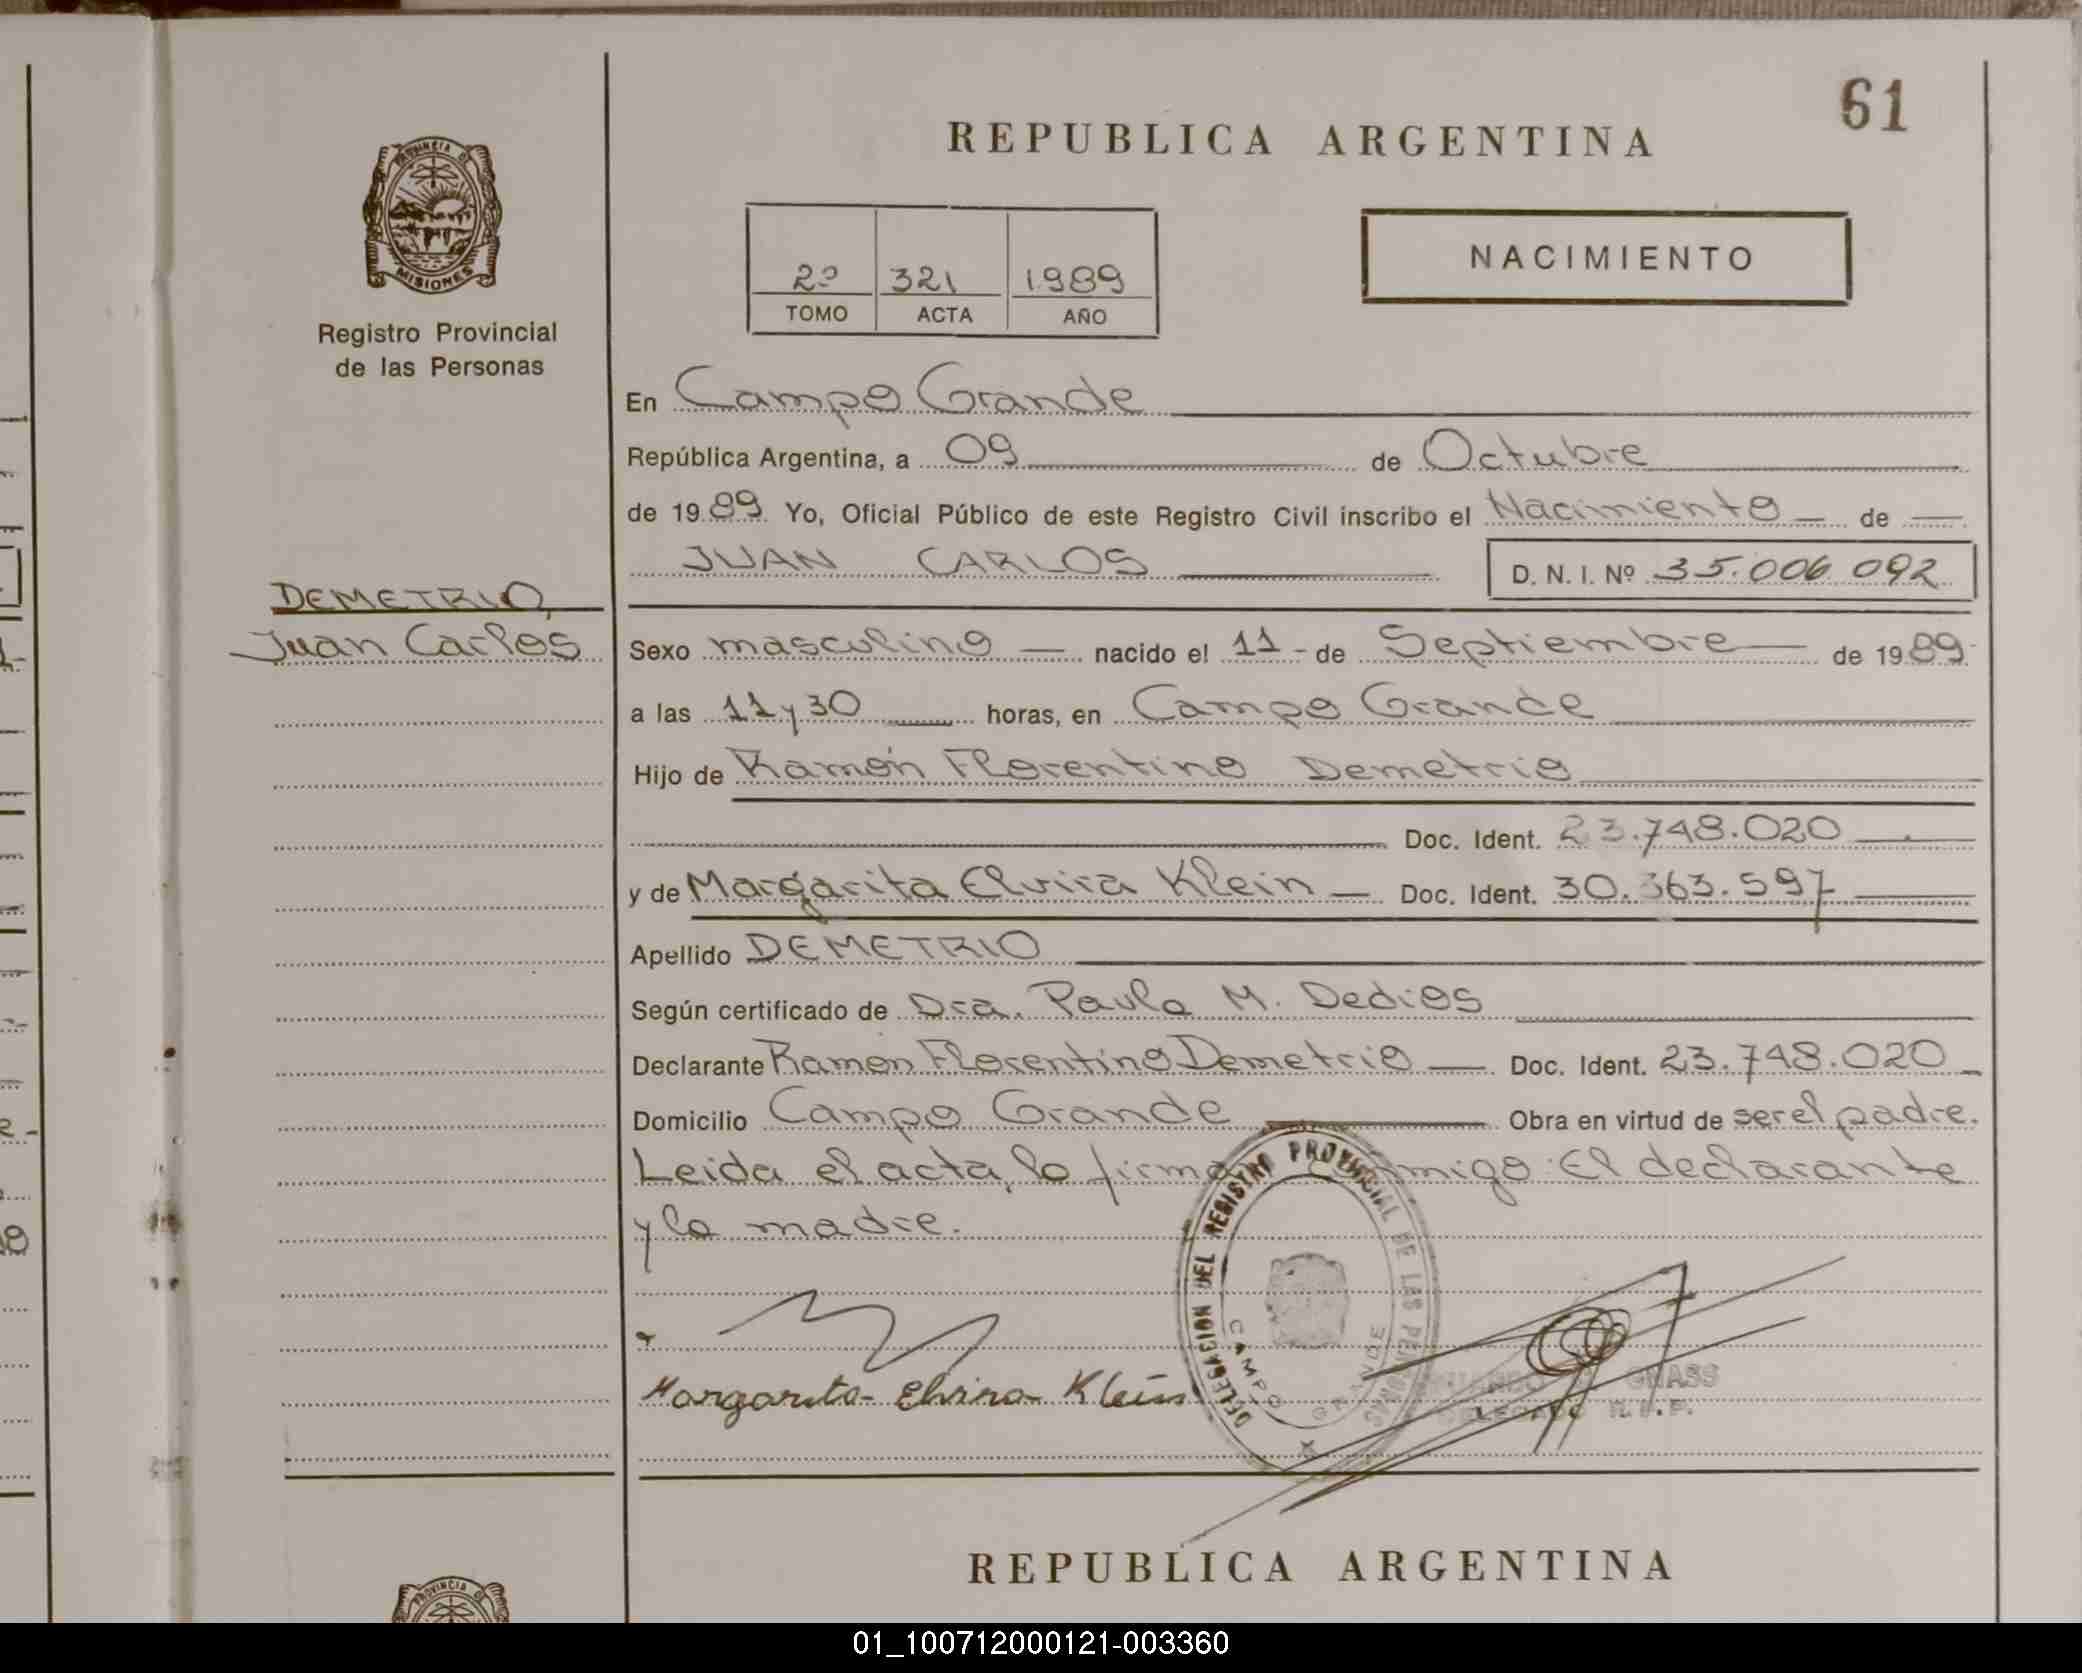 61
REPUBLICA ARGENTINA
PROVINCIA DE
MISIONES
Registro Provincial
de las Personas
2º 321 1989
TOMO ACTA AÑO
NACIMIENTO
En Campo Grande
República Argentina, a 09 de Octubre
de 1989 Yo, Oficial Público de este Registro Civil inscribo el Nacimiento de
JUAN CARLOS D. N. I. Nº 35.006.092
DEMETRIO,
Juan Carlos
Sexo masculino nacido el 11 - de Septiembre de 1989.
a las 11 y 30 horas, en Campo Grande
Hijo de Ramón Florentino Demetrio
Doc. Ident. 23.748.020
y de Margarita Elvira Klein Doc. Ident. 30.363.597
Apellido DEMETRIO
Según certificado de Dra. Paula M. Dedios
Declarante Ramón Florentino Demetrio Doc. Ident. 23.748.020
Domicilio Campo Grande Obra en virtud de ser el padre.
Leida el acta, lo firma migo El declarante
y la madre.
DELEGACION DEL REGISTRO PROVINCIAL DE LAS
CAMPO GRANDE
Margarita Elvira Klein
GNASS
DELEGADO R.P.P.
REPUBLICA ARGENTINA
PROVINCIA DE
01_100712000121-003360